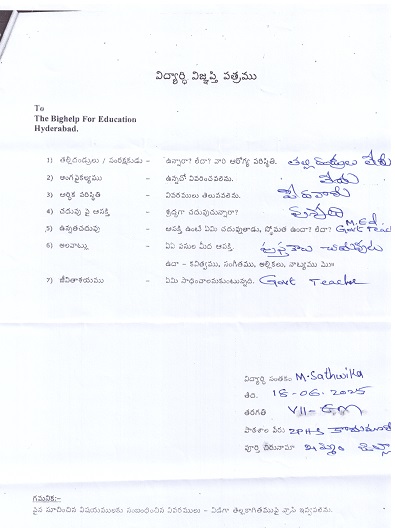 విద్యార్ధి విజ్ఞప్తి పత్రము
To
The Bighelp For Education
Hyderabad.
1) తల్లిదండ్రులు / సంరక్షకుడు – ఉన్నారా? లేదా? వారి ఆరోగ్య పరిస్థితి. తల్లి దండ్రులు లేరు
2) అంగవైకల్యము – ఉన్నచో వివరించవలెను. లేదు
3) ఆర్ధిక పరిస్థితి – వివరములు తెలుపవలెను. పేదవారు
4) చదువు పై ఆసక్తి – శ్రద్ధగా చదువుచున్నారా?
5) ఉన్నతచదువు – ఆసక్తి ఉంటే ఏమి చదువుతాడు, స్తోమత ఉందా? లేదా? M.Ed. Govt Teac
6) అలవాట్లు – ఏఏ పనుల మీద ఆసక్తి. పుస్తకాలు చదువుట
ఉదా – కవిత్వము, సంగీతము, అల్లికలు, నాట్యము మొ॥
7) జీవితాశయము – ఏమి సాధించాలనుకుంటున్నది. Govt Teacher
విద్యార్ధి సంతకం M.Sathwika
తేది. 18-06-2025
తరగతి VII - EM
పాఠశాల పేరు ZPHS
పూర్తి చిరునామా
గమనిక:-
పైన సూచించిన విషయములను సంబంధించిన వివరములు – విడిగా తెల్లకాగితముపై వ్రాసి ఇవ్వవలెను.